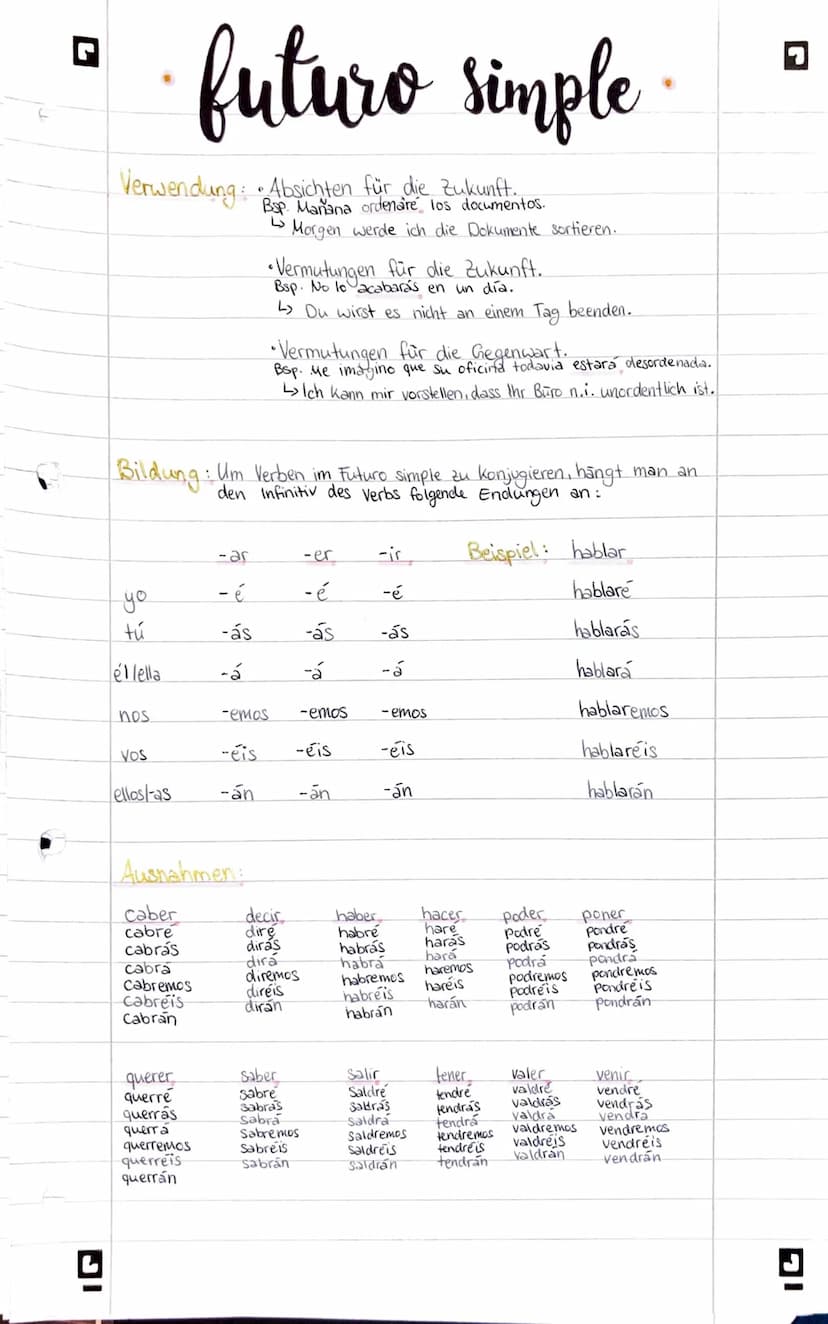 • futuro simple •
Verwendung: • Absichten für die Zukunft.
Bsp. Mañana ordenaré los documentos.
↳ Morgen werde ich die Dokumente sortieren.
• Vermutungen für die Zukunft.
Bsp. No lo acabarás en un día.
↳ Du wirst es nicht an einem Tag beenden.
• Vermutungen für die Gegenwart.
Bsp. Me imagino que su oficina todavía estará desordenada.
↳ Ich kann mir vorstellen, dass Ihr Büro n.i. unordentlich ist.
Bildung: Um Verben im Futuro simple zu konjugieren, hängt man an
den Infinitiv des Verbs folgende Endungen an:
-ar -er -ir Beispiel: hablar
yo -é -é -é hablaré
tú -ás -ás -ás hablarás
él/ella -á -á -á hablará
nos -emos -emos -emos hablaremos
vos -éis -éis -éis hablaréis
ellos/-as -án -án -án hablarán
Ausnahmen:
caber decir haber hacer poder poner
cabré diré habré haré podré pondré
cabrás dirás habrás harás podrás pondrás
cabrá dirá habrá hará podrá pondrá
cabremos diremos habremos haremos podremos pondremos
cabréis diréis habréis haréis podréis pondréis
cabrán dirán habrán harán podrán pondrán
querer saber salir tener valer venir
querré sabré saldré tendré valdré vendré
querrás sabrás saldrás tendrás valdrás vendrás
querrá sabrá saldrá tendrá valdrá vendrá
querremos sabremos saldremos tendremos valdremos vendremos
querréis sabréis saldréis tendréis valdréis vendréis
querrán sabrán saldrán tendrán valdrán vendrán